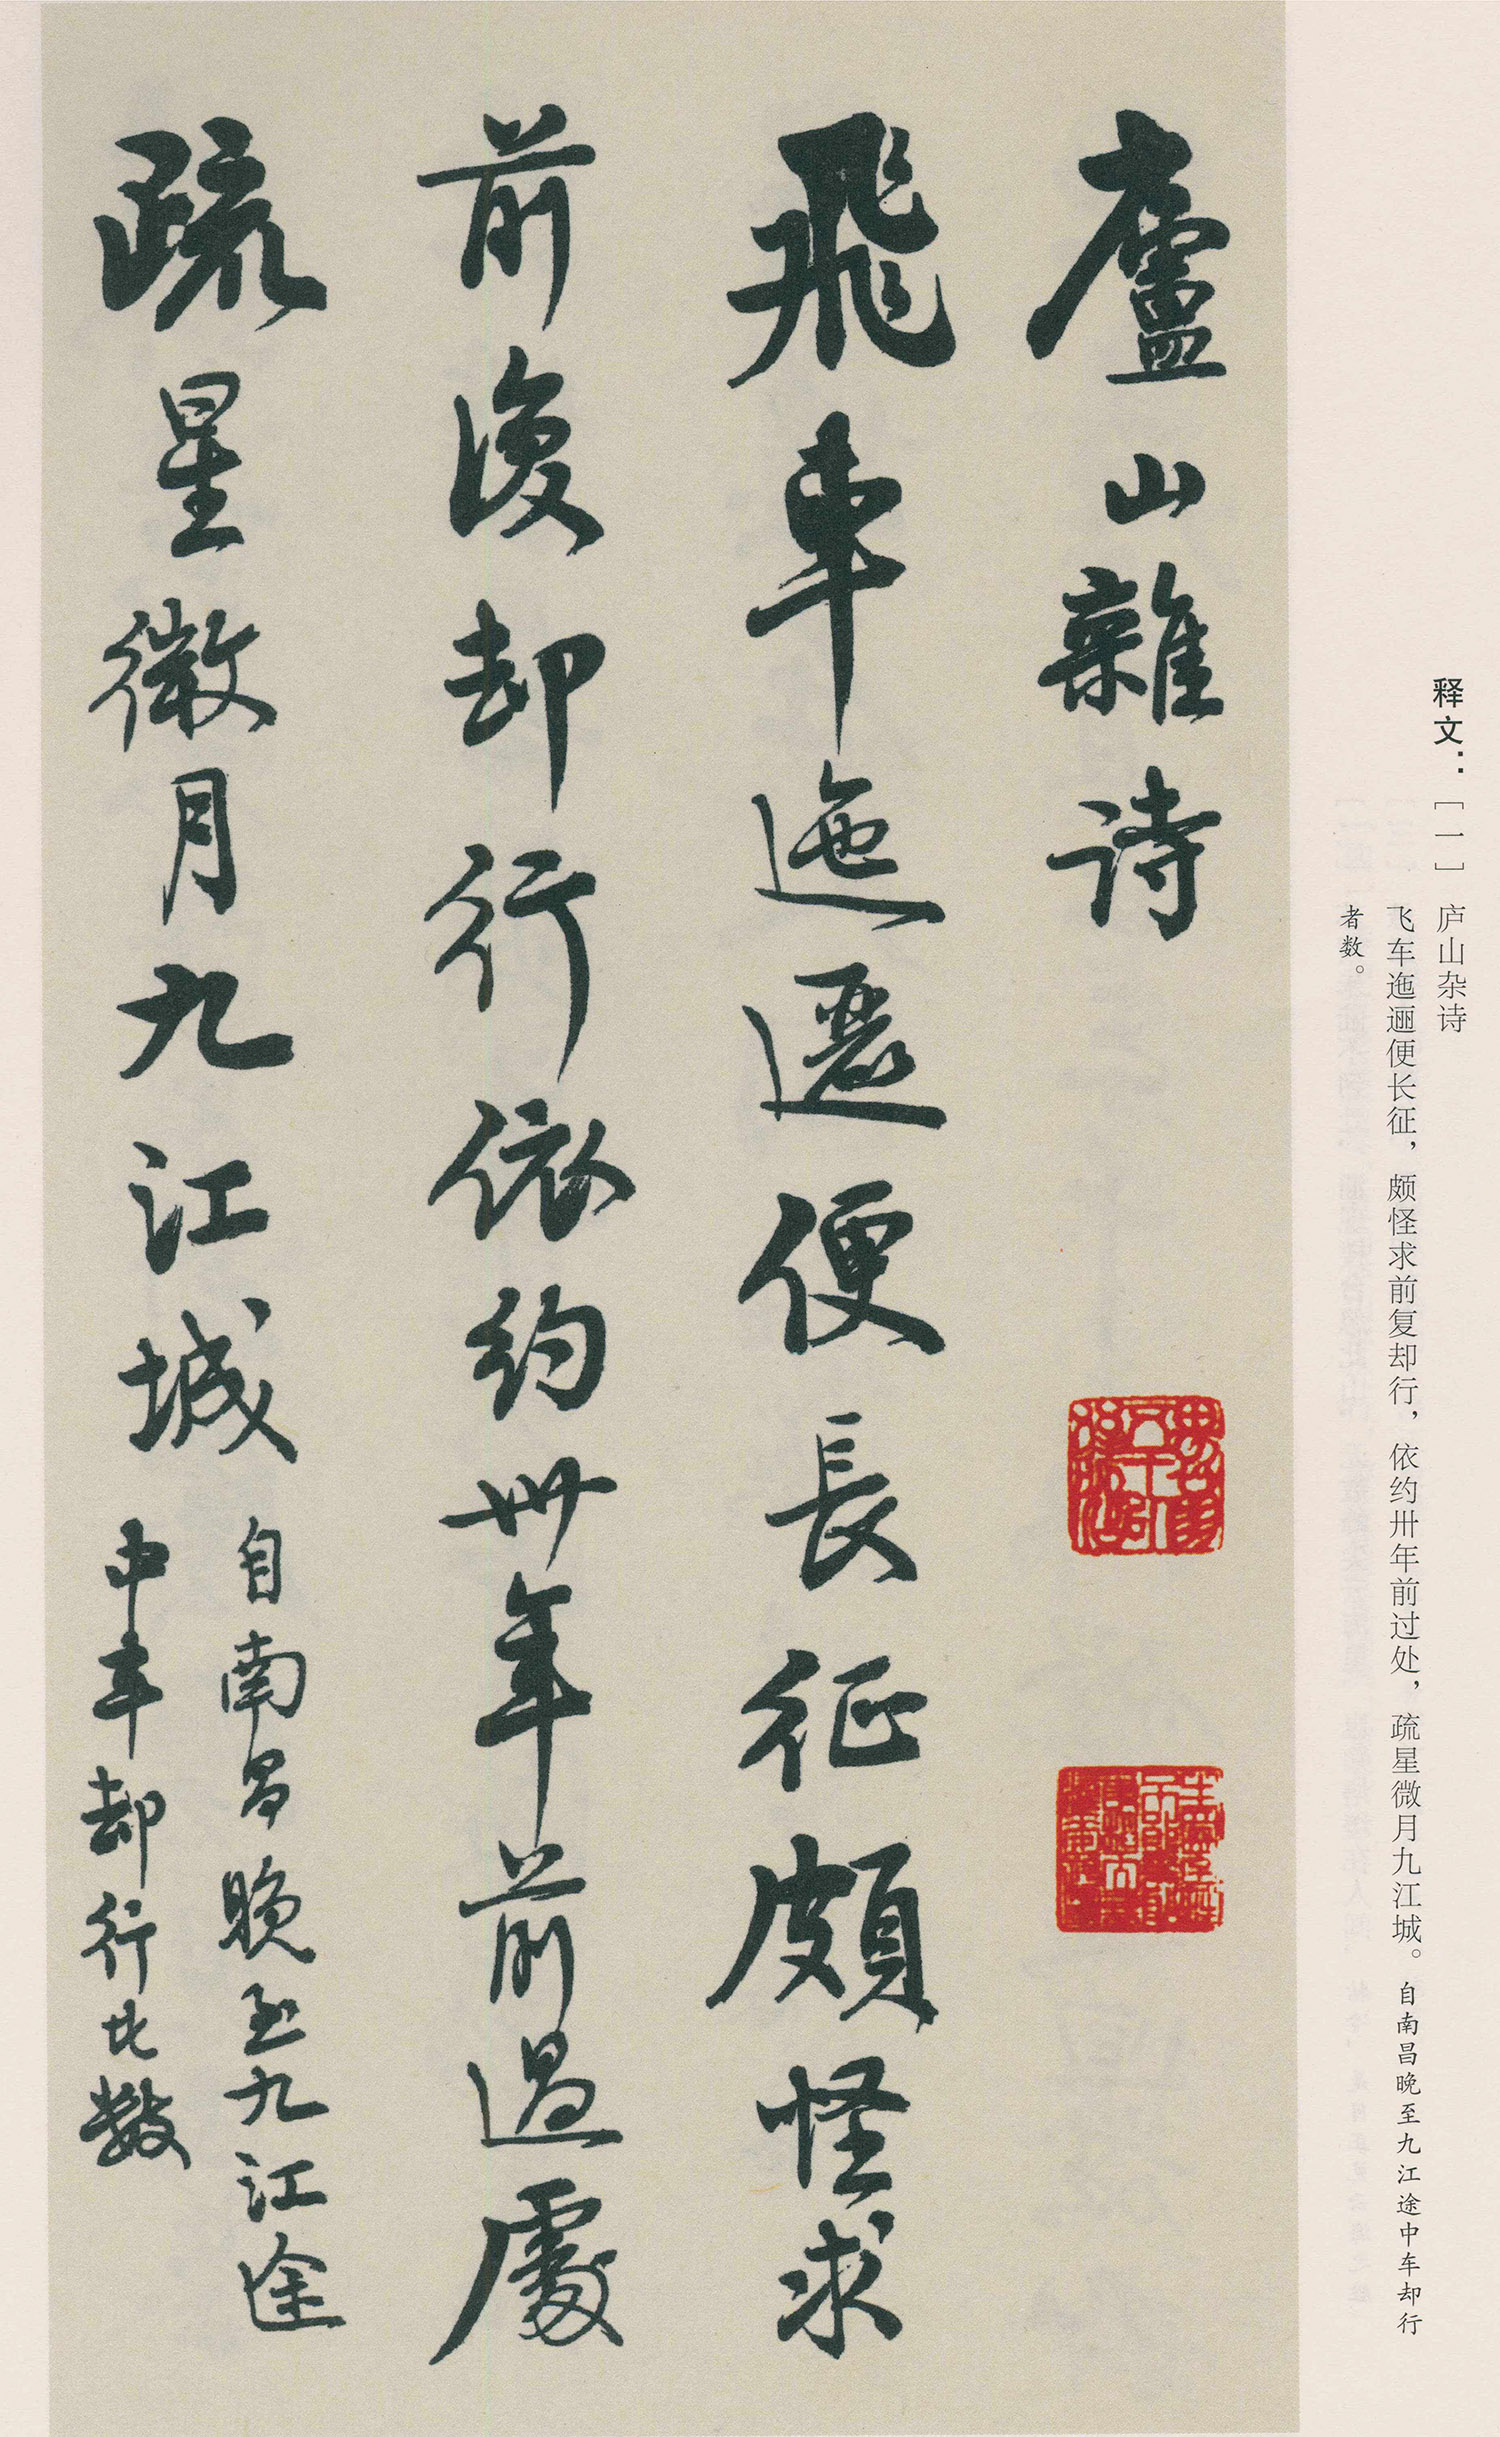 释文：［一］ 庐山杂诗
飞车迤逦便长征，颇怪求前复却行，依约卅年前过处，疏星微月九江城。自南昌晚至九江途中车却行
者数。
廬山雜诗
飛車迤邐便長征頗怪求
前復却行依約卅年前過處
疏星微月九江城
自南昌晚至九江途
中車却行比數